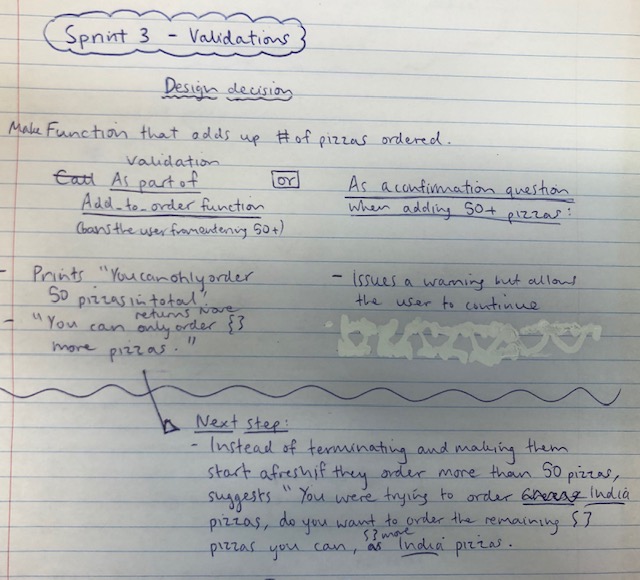 Sprint 3 - Validations
Design decision
Make Function that adds up # of pizzas ordered.
validation
Call As part of
Add_to_order function
(bans the user from entering 50+)
or
As a confirmation question
when adding 50+ pizzas:
- Prints "You can only order
50 pizzas in total"
returns None
- "You can only order {}
more pizzas."
- Issues a warning but allows
the user to continue
Next step:
- Instead of terminating and making them
start afresh if they order more than 50 pizzas,
suggests "You were trying to order India
pizzas, do you want to order the remaining {}
pizzas you can, as India pizzas.
{} more